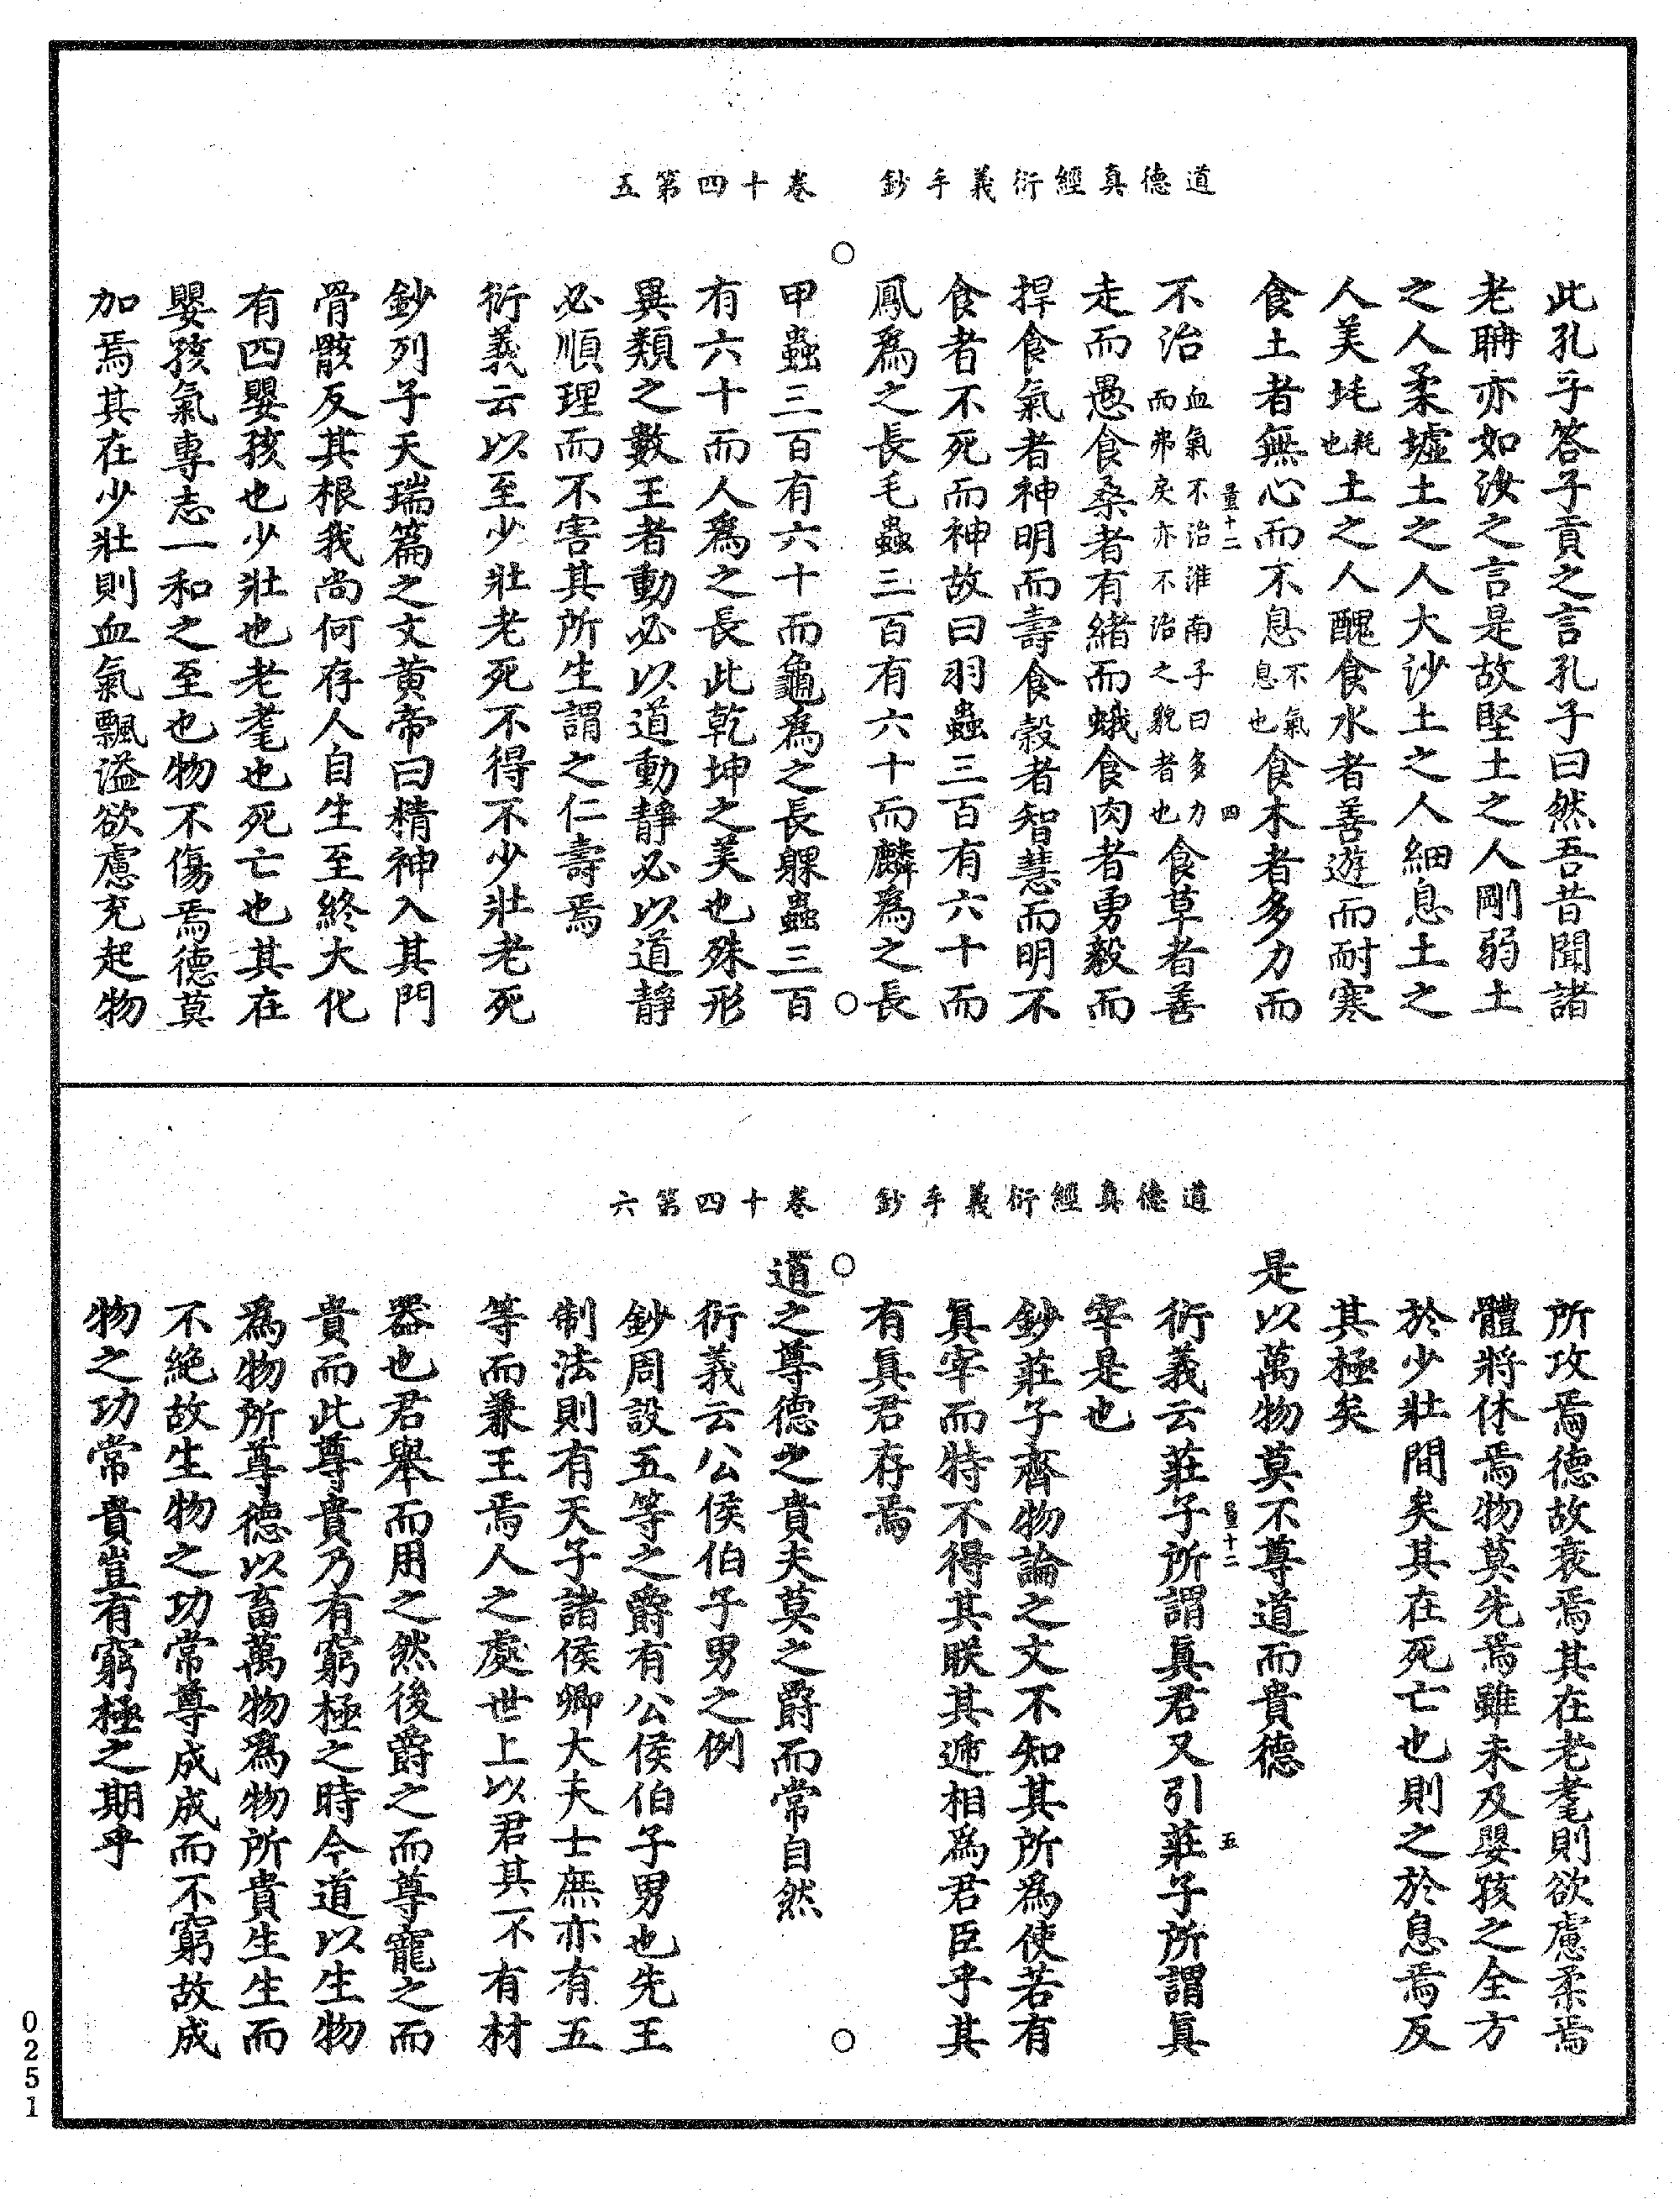 道德真經衍義手鈔　卷十四第五
此孔子答子貢之言孔子曰然吾昔聞諸
老聃亦如汝之言是故堅土之人剛弱土
之人柔墟土之人大沙土之人細息土之
人美圫耗也土之人醜食水者善遊而耐寒
食土者無心而不息不氣息也食木者多力而
量十二　四
不治血氣不治淮南子曰多力而弗戾亦不治之貌者也食草者善
走而愚食桑者有緒而蛾食肉者勇毅而
捍食氣者神明而壽食穀者智慧而明不
食者不死而神故曰羽蟲三百有六十而
鳳爲之長毛蟲三百有六十而麟爲之長
甲蟲三百有六十而龜爲之長躶蟲三百
有六十而人爲之長此乾坤之美也殊形
異類之數王者動必以道動靜必以道靜
必順理而不害其所生謂之仁壽焉
衍義云以至少壯老死不得不少壯老死
鈔列子天瑞篇之文黄帝曰精神入其門
骨骸反其根我尚何存人自生至終大化
有四嬰孩也少壯也老耄也死亡也其在
嬰孩氣專志一和之至也物不傷焉德莫
加焉其在少壯則血氣飄溢欲慮充起物
道德真經衍義手鈔　卷十四第六
所攻焉德故衰焉其在老耄則欲慮柔焉
體將休焉物莫先焉雖未及嬰孩之全方
於少壯間矣其在死亡也則之於息焉反
其極矣
是以萬物莫不尊道而貴德
量十二　五
衍義云莊子所謂眞君又引莊子所謂眞
宰是也
鈔莊子齊物論之文不知其所爲使若有
眞宰而特不得其眹其遞相爲君臣乎其
有眞君存焉
道之尊德之貴夫莫之爵而常自然
衍義云公侯伯子男之例
鈔周設五等之爵有公侯伯子男也先王
制法則有天子諸侯卿大夫士庶亦有五
等而兼王焉人之處世上以君其一不有材
器也君舉而用之然後爵之而尊寵之而
貴而此尊貴乃有窮極之時今道以生物
爲物所尊德以畜萬物爲物所貴生生而
不絶故生物之功常尊成成而不窮故成
物之功常貴豈有窮極之期乎
0251